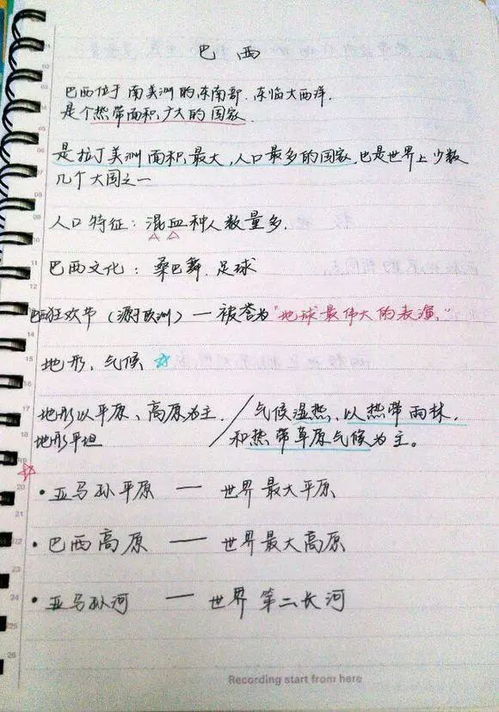 巴西
巴西位于南美洲的东南部，东临大西洋，
是个热带面积广大的国家
是拉丁美洲面积最大，人口最多的国家，也是世界上少数
几个大国之一
人口特征：混血种人数量多.
巴西文化：桑巴舞，足球
巴西狂欢节（源于欧洲）— 被誉为"地球最伟大的表演"
地形，气候 ☆
地形以平原、高原为主. / 气候湿热，以热带雨林，
地形平坦 / 和热带草原气候为主。
☆
• 亚马孙平原 — 世界最大平原
• 巴西高原 — 世界最大高原
• 亚马孙河 — 世界第二长河
Recording start from here